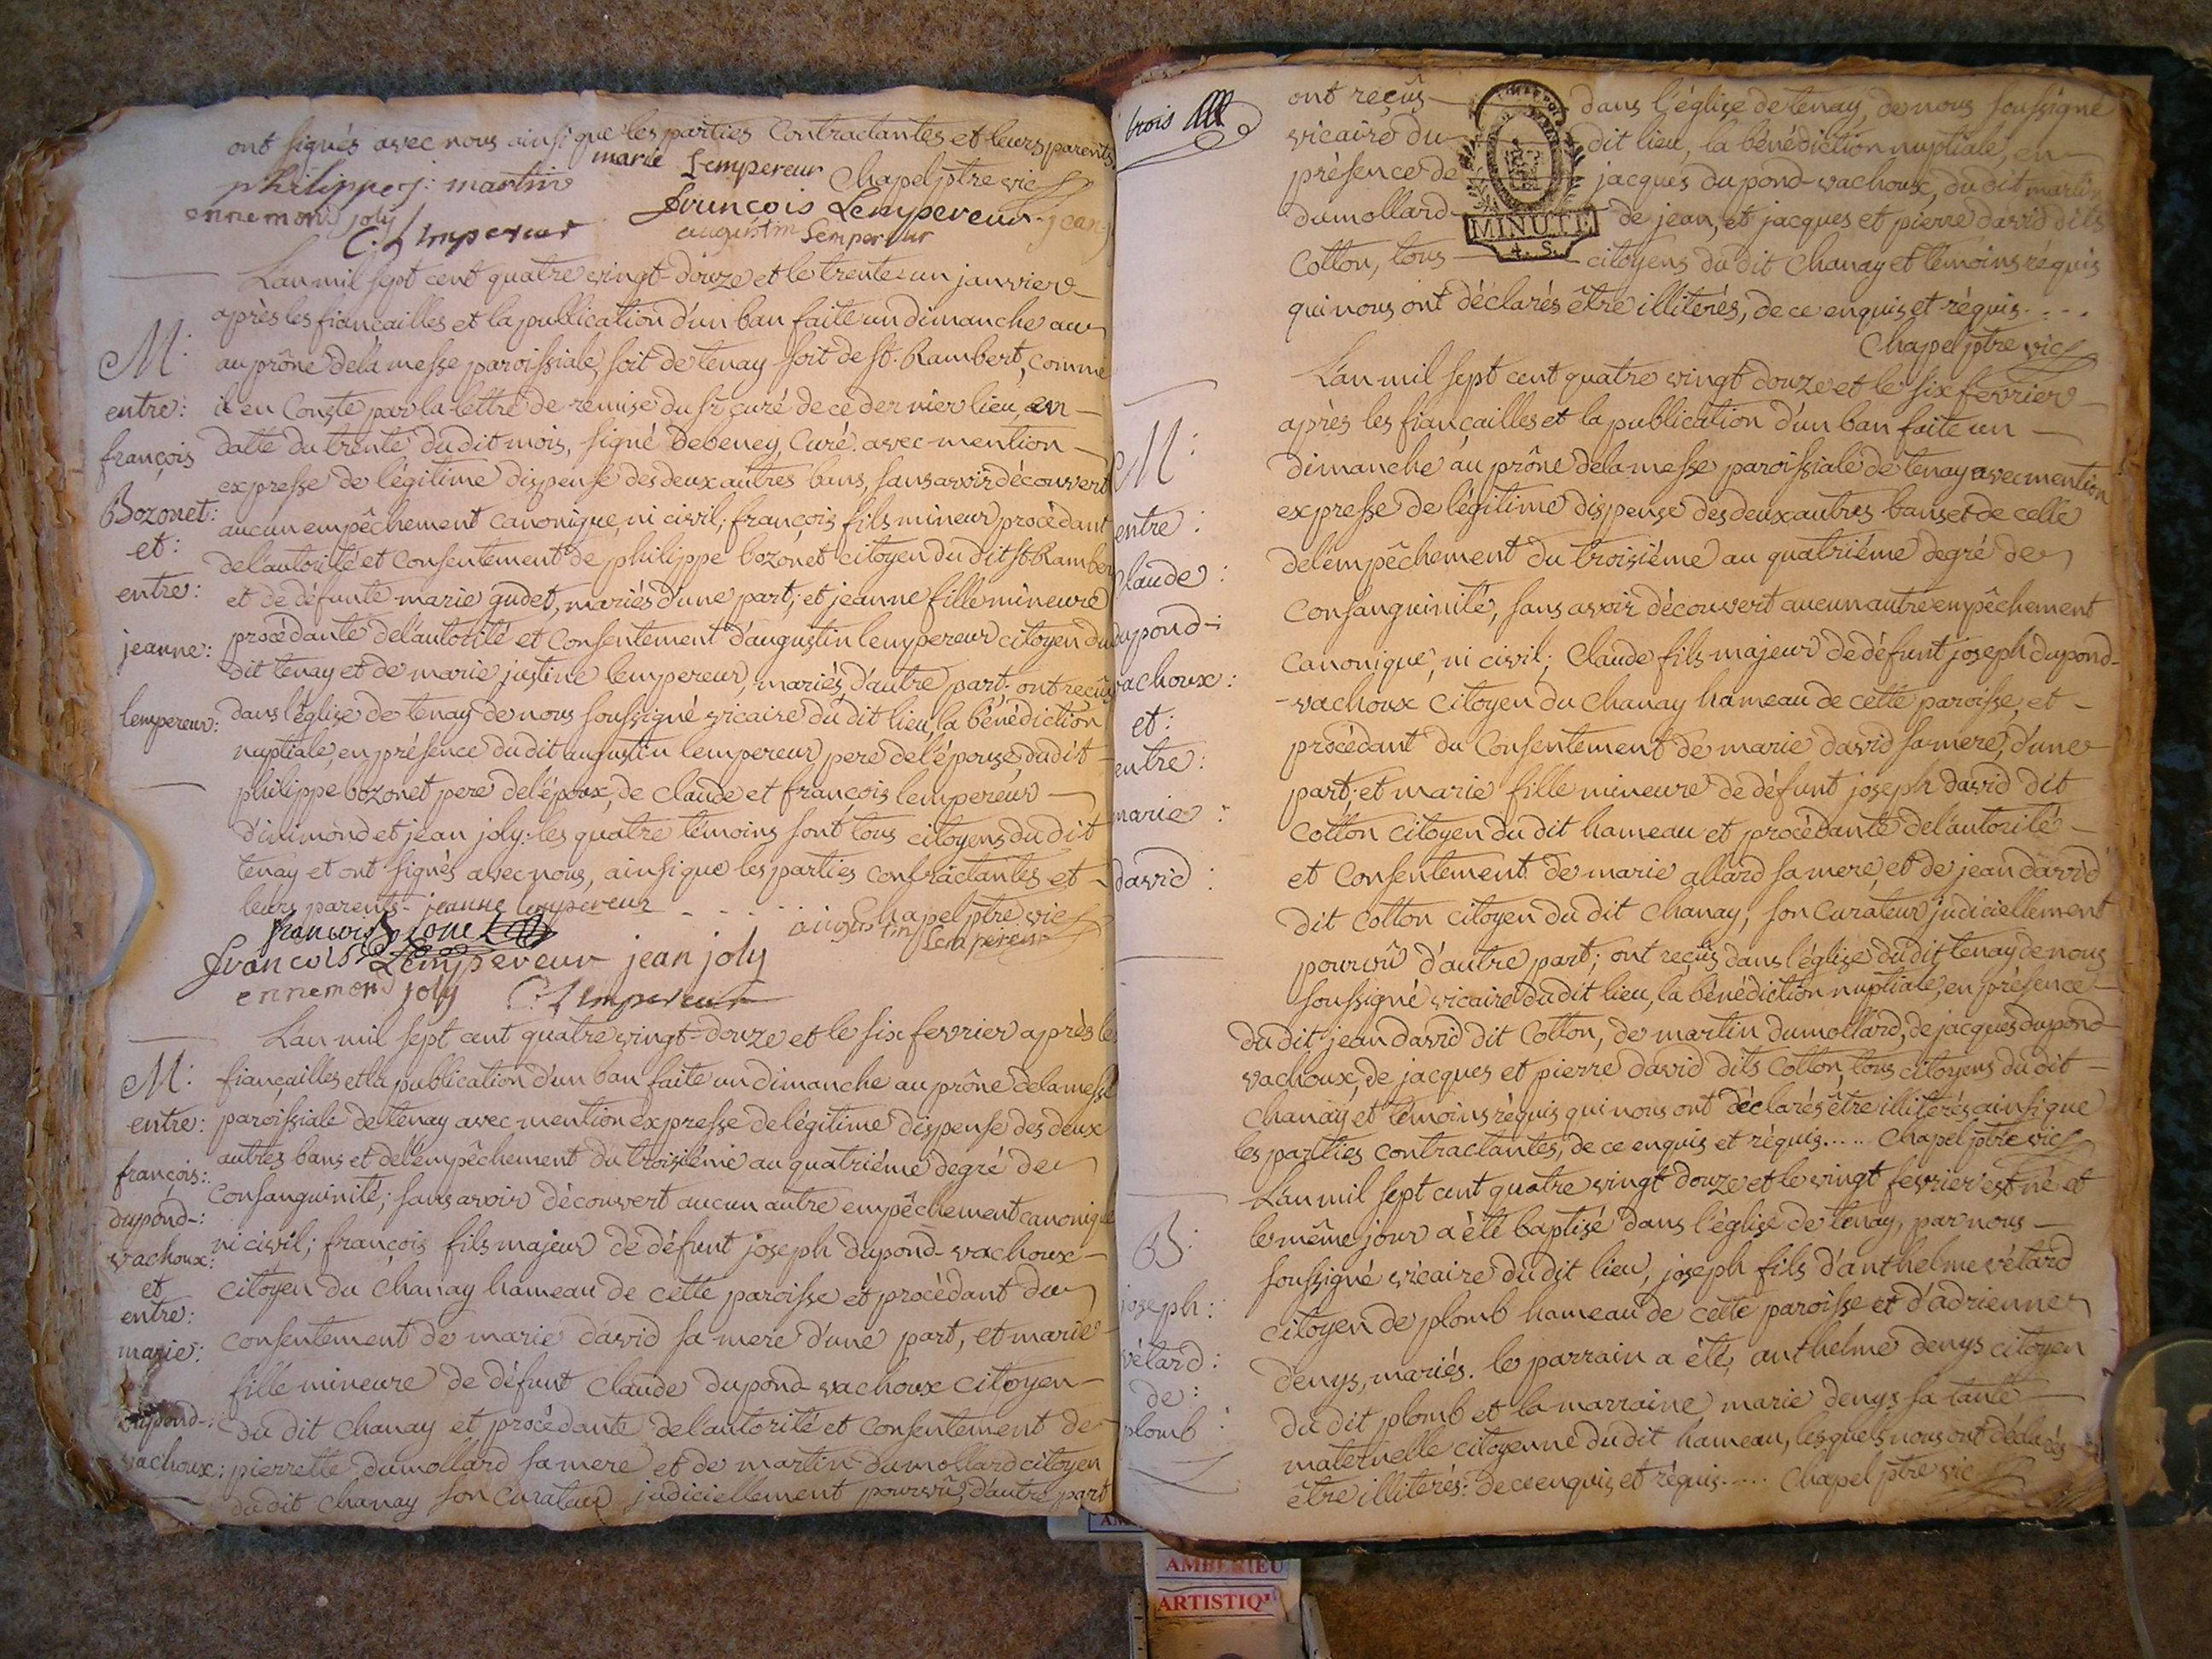 ont signés avec nous ainsi que les parties Contractantes et leurs parents
marie Lempereur
Chapel ptre vic
philippe j: martin
ennemond joly
françois Lempereur jean j
C. Lempereur
augustin Lempereur
L'an mil sept cent quatre vingt-douze et le trente-un janvier
après les fiancailles et la publication d'un ban faite un dimanche au
au prône dela messe paroissiale, soit de tenay soit de st. Rambert, comme
il en Conste par la lettre de remise du sr. curé de ce dernier lieu, en
datte du trente du dit mois, signé Debeney, Curé avec mention
expresse de légitime dispense des deux autres bans, sans avoir découvert
aucun empêchement canonique, ni civil; françois fils mineur procédant
de l'autorité et Consentement de philippe bozonet citoyen du dit St Ramber
et de défunte marie gudet, mariés d'une part; et jeanne fille mineure
procédante de l'autorité et Consentement d'augustin lempereur citoyen du
dit tenay et de marie justine lempereur, mariés, d'autre part; ont reçûs
dans l'église de tenay de nous soussigné vicaire du dit lieu, la bénédiction
nuptiale, en présence du dit augustin lempereur pere de l'épouse, du dit
philippe bozonet pere de l'époux, de claude et françois lempereur
d'inimond et jean joly: les quatre témoins sont tous citoyens du dit
tenay et ont signés avec nous, ainsi que les parties contractantes et
leurs parents. jeanne lempereur
Chapel ptre vic
augustin Lempereur
françois
françois Lempereur jean joly
ennemond joly C. Lempereur
M:
entre:
françois
Bozonet:
et:
entre:
jeanne:
lempereur:
L'an mil sept cent quatre vingt-douze et le six fevrier après les
fiançailles et la publication d'un ban faite un dimanche au prône dela messe
paroissiale de tenay avec mention expresse de légitime dispense des deux
autres bans et de l'empêchement du troisième au quatriéme degré de
Consanguinité; sans avoir découvert aucun autre empêchement canonique
ni civil; françois fils majeur de défunt joseph dupond-vachoux
citoyen du Chanay hameau de cette paroisse et procédant du
consentement de marie david sa mere d'une part, et marie
fille mineure de défunt claude dupond-vachoux citoyen
du dit chanay et procédante de l'autorité et consentement de
pierrette dumollard sa mere et de martin dumollard citoyen
du dit chanay son Curateur judiciellement pourvû, d'autre part
M:
entre:
françois:
dupond-:
vachoux:
et
entre:
marie:
dupond-:
vachoux:
trois
ont reçûs dans l'église de tenay, de nous soussigné
vicaire du dit lieu, la bénédiction nuptiale, en
présence de jacques dupond-vachoux, du dit martin
dumollard de jean, et jacques et pierre david dits
Cotton, tous citoyens du dit Chanay et témoins réquis
MINUTE
4. S.
qui nous ont déclarés être illiterés, de ce enquis et réquis....
Chapel ptre vic
L'an mil sept cent quatre vingt douze et le six fevrier
après les fiançailles et la publication d'un ban faite un
dimanche au prône dela messe paroissiale de tenay avec mention
expresse de légitime dispense des deux autres bans et de celle
de l'empêchement du troisiéme au quatriéme degré de
Consanguinité, sans avoir découvert aucun autre empêchement
canonique, ni civil; Claude fils majeur de défunt joseph dupond-
-vachoux citoyen du Chanay hameau de cette paroisse, et
procédant du Consentement de marie david sa mere, d'une
part; et marie fille mineure de défunt joseph david dit
cotton citoyen du dit hameau et procédante de l'autorité
et Consentement de marie allard sa mere, et de jean david
dit cotton citoyen du dit chanay, son Curateur judiciellement
pourvû d'autre part; ont reçûs dans l'église du dit tenay de nous
soussigné vicaire du dit lieu, la bénédiction nuptiale, en présence
du dit jean david dit Cotton, de martin dumollard, de jacques dupond-
vachoux, de jacques et pierre david dits Cotton, tous citoyens du dit
chanay et témoins réquis qui nous ont déclarés être illiterés ainsi que
les parties contractantes, de ce enquis et réquis..... Chapel ptre vic
M:
entre:
Claude:
dupond-:
vachoux:
et:
entre:
marie:
david:
L'an mil sept cent quatre vingt douze et le vingt fevrier est né et
le même jour a été baptisé dans l'église de tenay, par nous
soussigné vicaire du dit lieu, joseph fils d'anthelme vétard
citoyen de plomb hameau de cette paroisse et d'adrienne
denys, mariés. le parrain a été, anthelme denys citoyen
du dit plomb et la marraine marie denys sa tante
maternelle citoyenne du dit hameau, lesquels nous ont déclarés
être illiterés: de ce enquis et réquis..... Chapel ptre vic
B:
joseph:
vétard:
de:
plomb:
AMBERIEU
ARTISTIQ